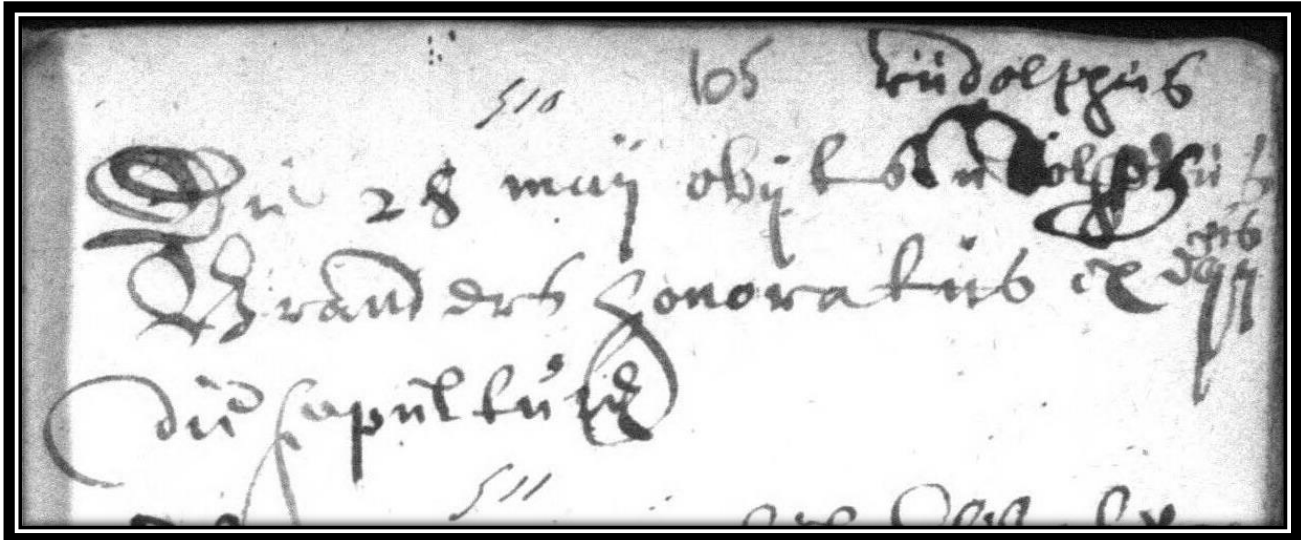 510 105 rudolphus
Die 28 maij obijt rudolphus
Branders honoratus ex
die sepultura
511